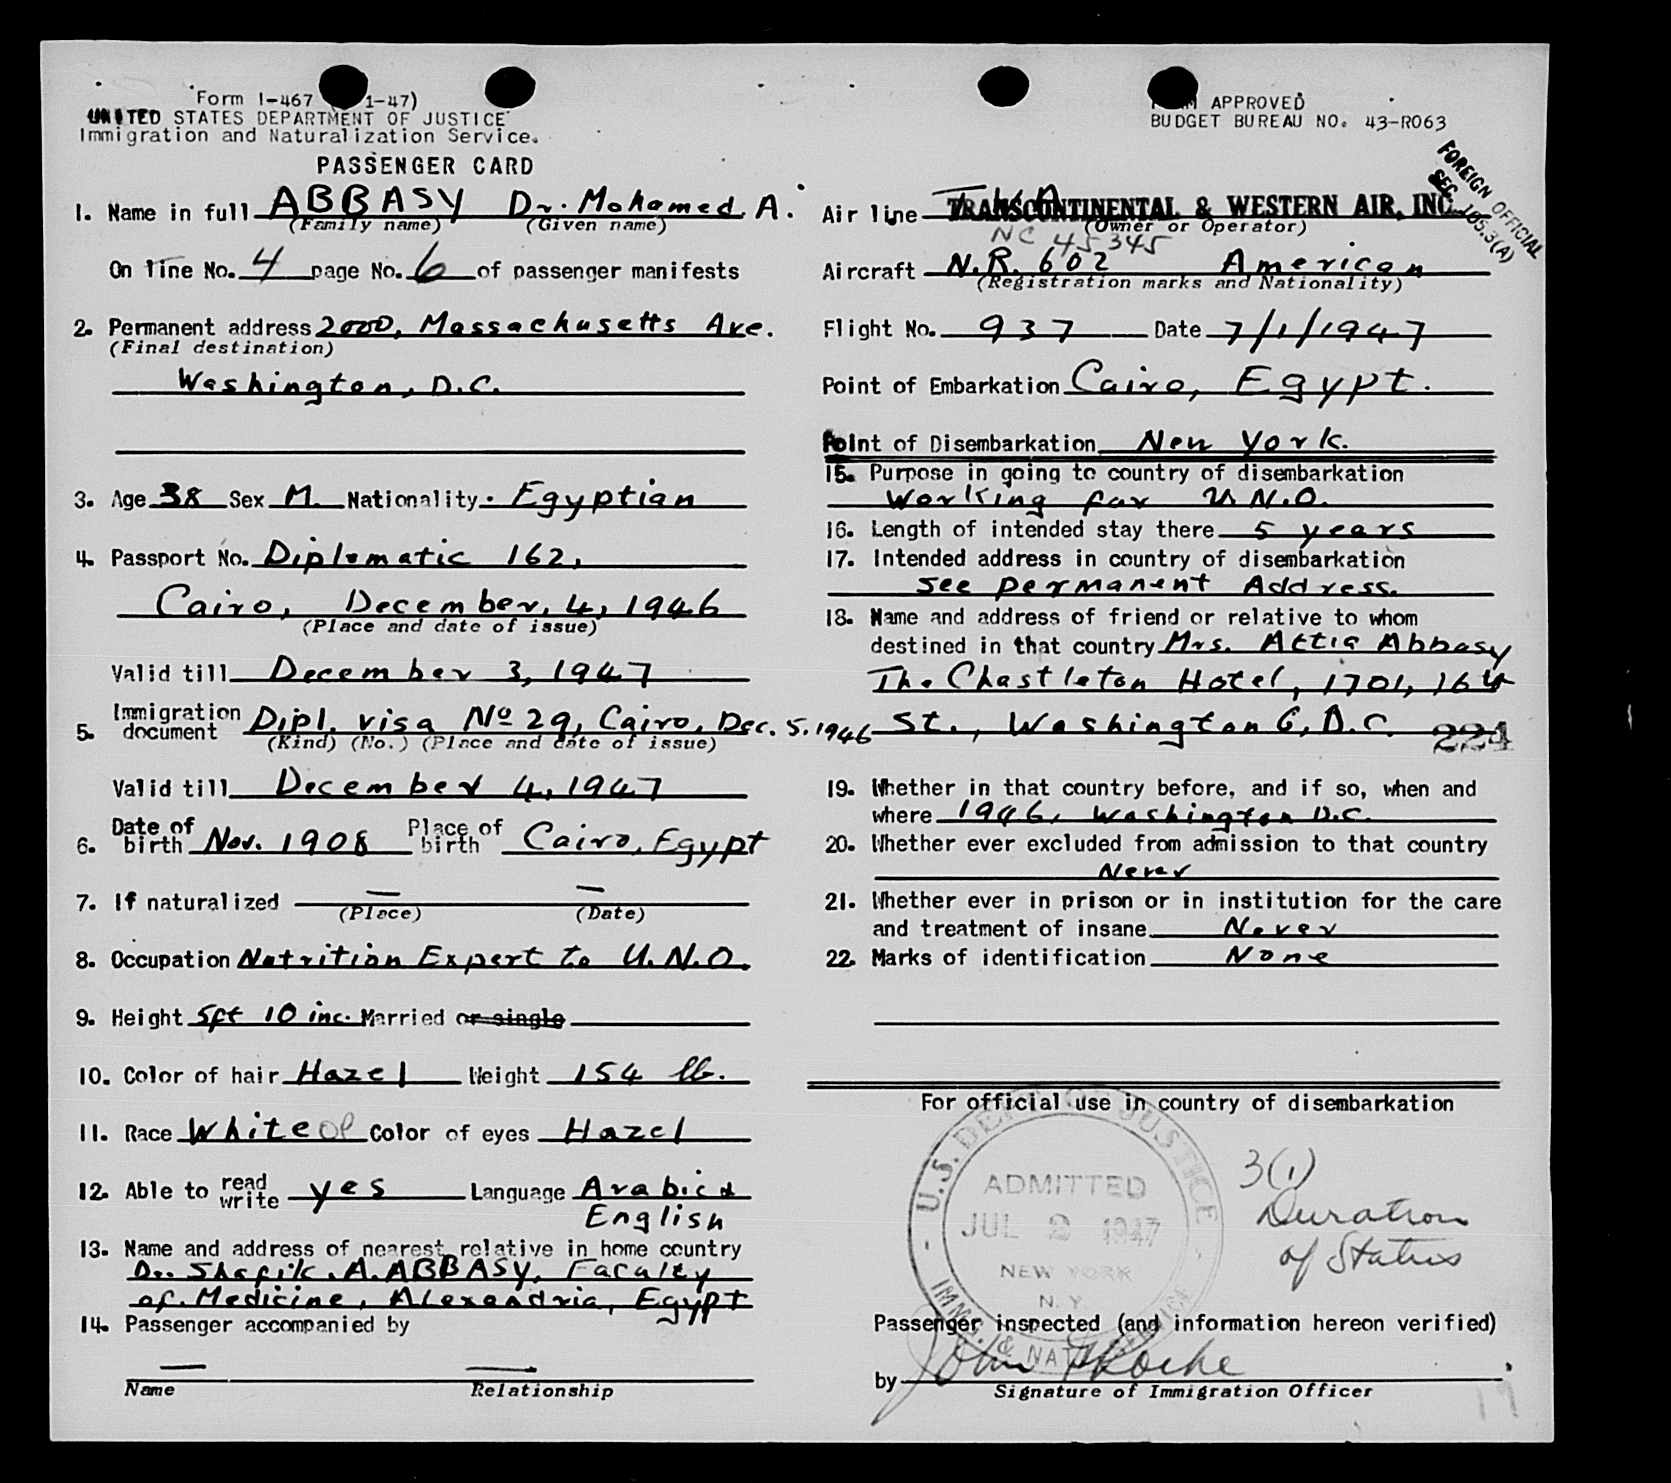 Form I-467 1-47)
UNITED STATES DEPARTMENT OF JUSTICE
Immigration and Naturalization Service.
PASSENGER CARD
1. Name in full ABBASY Dr. Mohamed A.
(Family name) (Given name)
On line No. 4 page No. 6 of passenger manifests
2. Permanent address 2000, Massachusetts Ave.
(Final destination)
Washington, D.C.
3. Age 38 Sex M. Nationality. Egyptian
4. Passport No. Diplomatic 162,
Cairo, December, 4, 1946
(Place and date of issue)
Valid till December 3, 1947
5. Immigration document Dipl. visa No 29, Cairo, Dec. 5. 1946
(Kind) (No.) (Place and date of issue)
Valid till December 4, 1947
6. Date of birth Nov. 1908 Place of birth Cairo, Egypt
7. If naturalized — —
(Place) (Date)
8. Occupation Nutrition Expert to U.N.O.
9. Height 5ft 10 inc. Married or single
10. Color of hair Hazel Weight 154 lb.
11. Race White Color of eyes Hazel
12. Able to read write yes Language Arabic &
English
13. Name and address of nearest relative in home country
Dr. Shafik. A. ABBASY, Faculty
of Medicine, Alexandria, Egypt
14. Passenger accompanied by
— —
Name Relationship
FORM APPROVED
BUDGET BUREAU NO. 43-R063
FOREIGN OFFICIAL
SEC. 105.3(A)
Air line T.W.A. TRANSCONTINENTAL & WESTERN AIR, INC.
(Owner or Operator)
NC 45345
Aircraft N.R. 602 American
(Registration marks and Nationality)
Flight No. 937 Date 7/1/1947
Point of Embarkation Cairo, Egypt.
Point of Disembarkation New York.
15. Purpose in going to country of disembarkation
Working for U.N.O.
16. Length of intended stay there 5 years
17. Intended address in country of disembarkation
See permanent Address.
18. Name and address of friend or relative to whom
destined in that country Mrs. Attia Abbasy
The Chastleton Hotel, 1701, 16th
St., Washington 6, D.C. 224
19. Whether in that country before, and if so, when and
where 1946, Washington D.C.
20. Whether ever excluded from admission to that country
Never
21. Whether ever in prison or in institution for the care
and treatment of insane Never
22. Marks of identification None
For official use in country of disembarkation
U.S. DEPT. OF JUSTICE
ADMITTED
JUL 2 1947
NEW YORK
N.Y.
IMM. & NATZ. SERVICE
3(1)
Duration
of Status
Passenger inspected (and information hereon verified)
by John
Signature of Immigration Officer
19